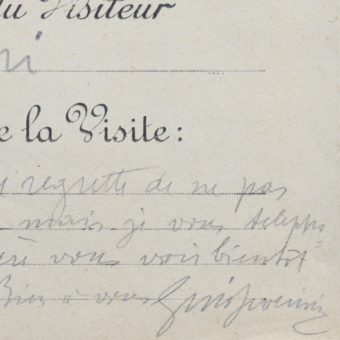 du Visiteur
e la Visite:
regrette de ne pas
mais je vous télépho
vous voir bientôt
Bien à vous